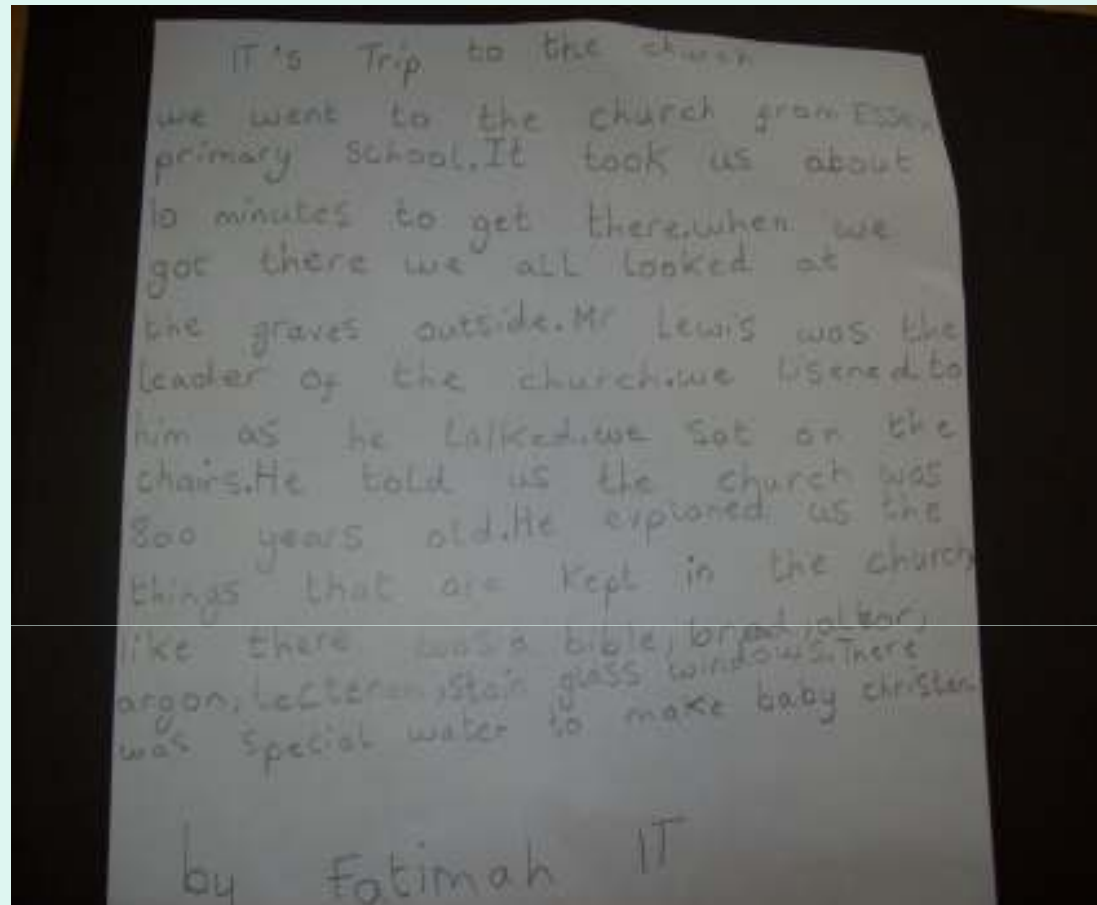 IT's Trip to the church
we went to the church from Essex
primary School.It took us about
10 minutes to get there.when we
got there we all looked at
the graves outside.Mr Lewis was the
leader of the church.we lisened to
him as he talked.we sat on the
chairs.He told us the church was
800 years old.He explaned us the
things that are kept in the church
like there was a bible, bread, altar,
argon, Lecteren, stain glass windows.There
was special water to make baby christen.
by Fatimah IT